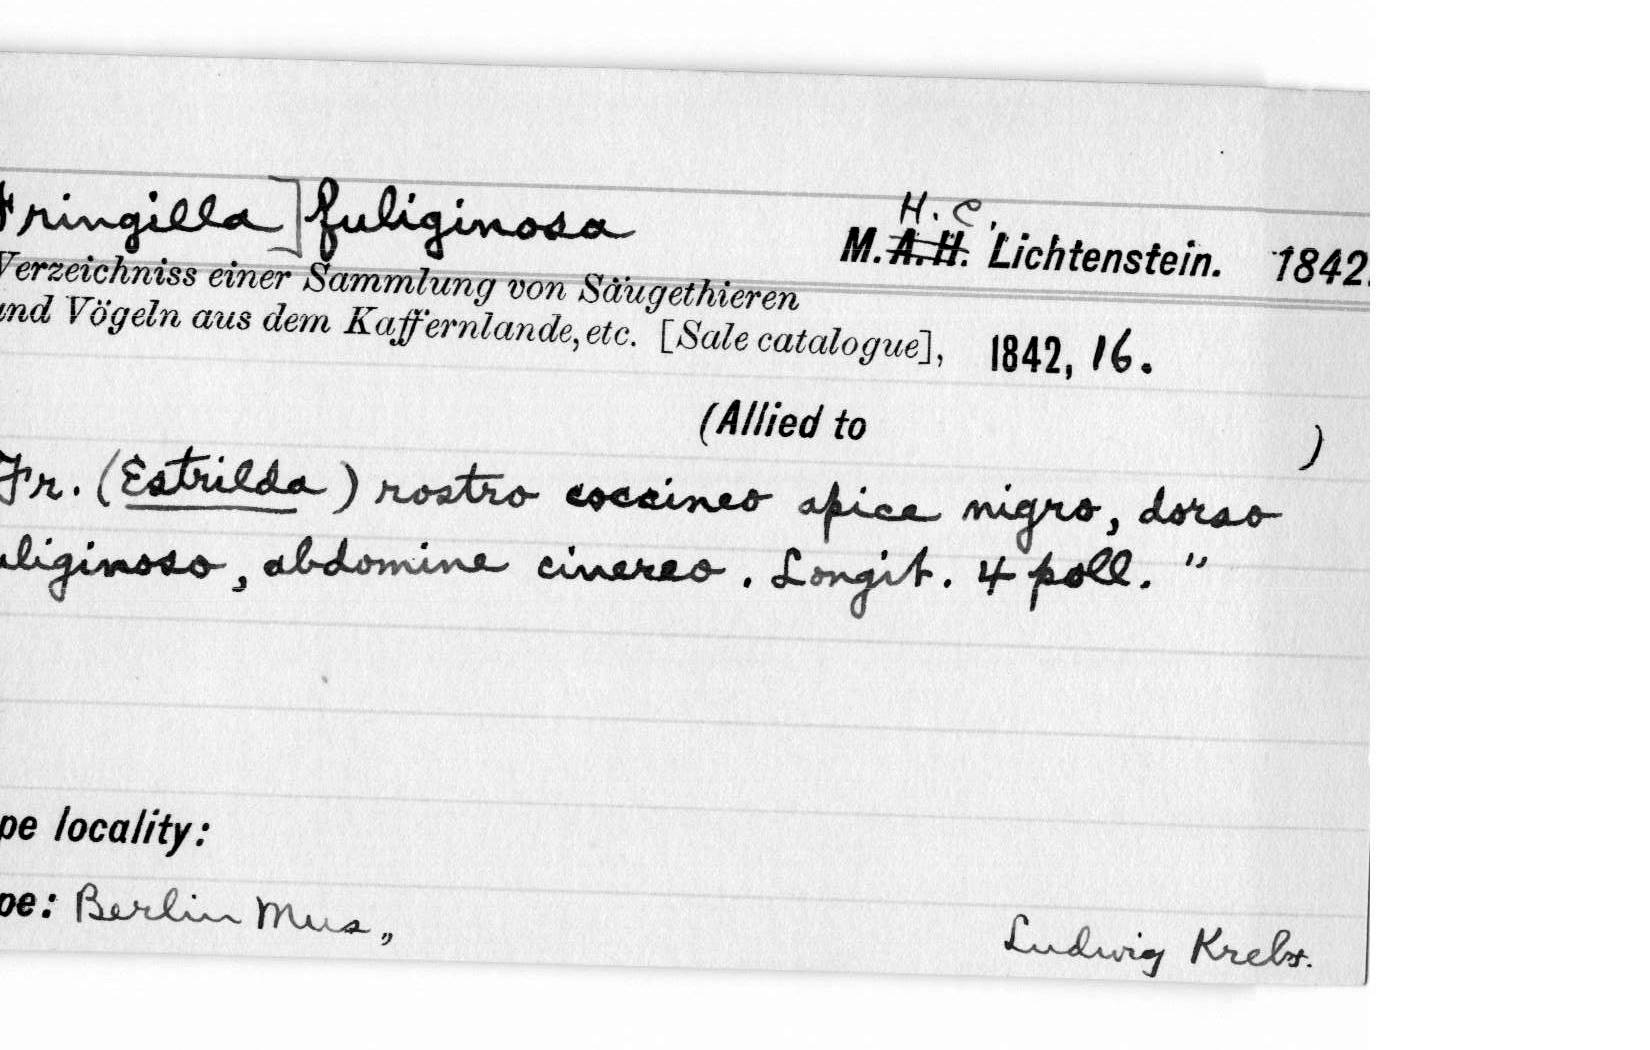 Fringilla] fuliginosa
H. C.
M. A. H. Lichtenstein. 1842.
Verzeichniss einer Sammlung von Säugethieren
und Vögeln aus dem Kaffernlande, etc. [Sale catalogue], 1842, 16.
(Allied to )
Fr. (Estrilda) rostro coccineo apice nigro, dorso
uliginoso, abdomine cinereo. Longit. 4 poll."
pe locality:
pe: Berlin Mus,,
Ludwig Krebs.